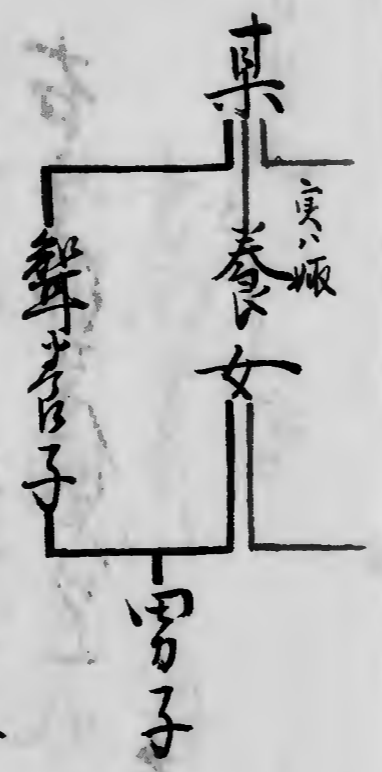 某
実ハ娵
養女
聟養子
男子